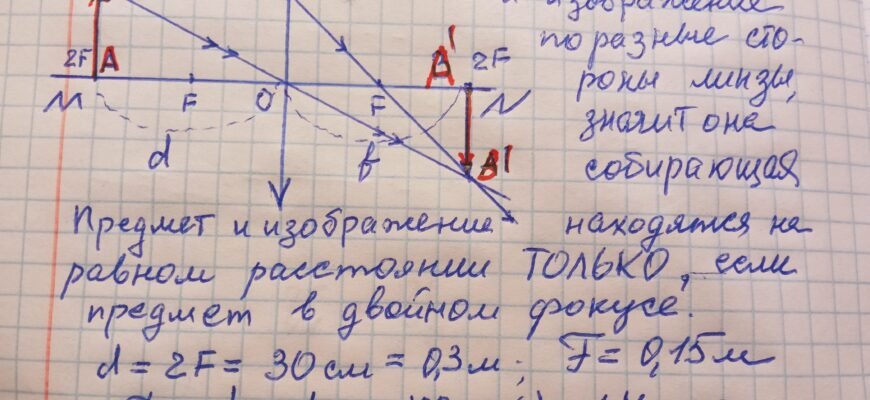 изображение
по разные сто-
роны линзы,
значит она
собирающая
2F A A' 2F
M F O F N
d f B'
Предмет и изображение находятся на
равном расстоянии ТОЛЬКО, если
предмет в двойном фокусе.
d = 2F = 30 см = 0,3 м; F = 0,15 м